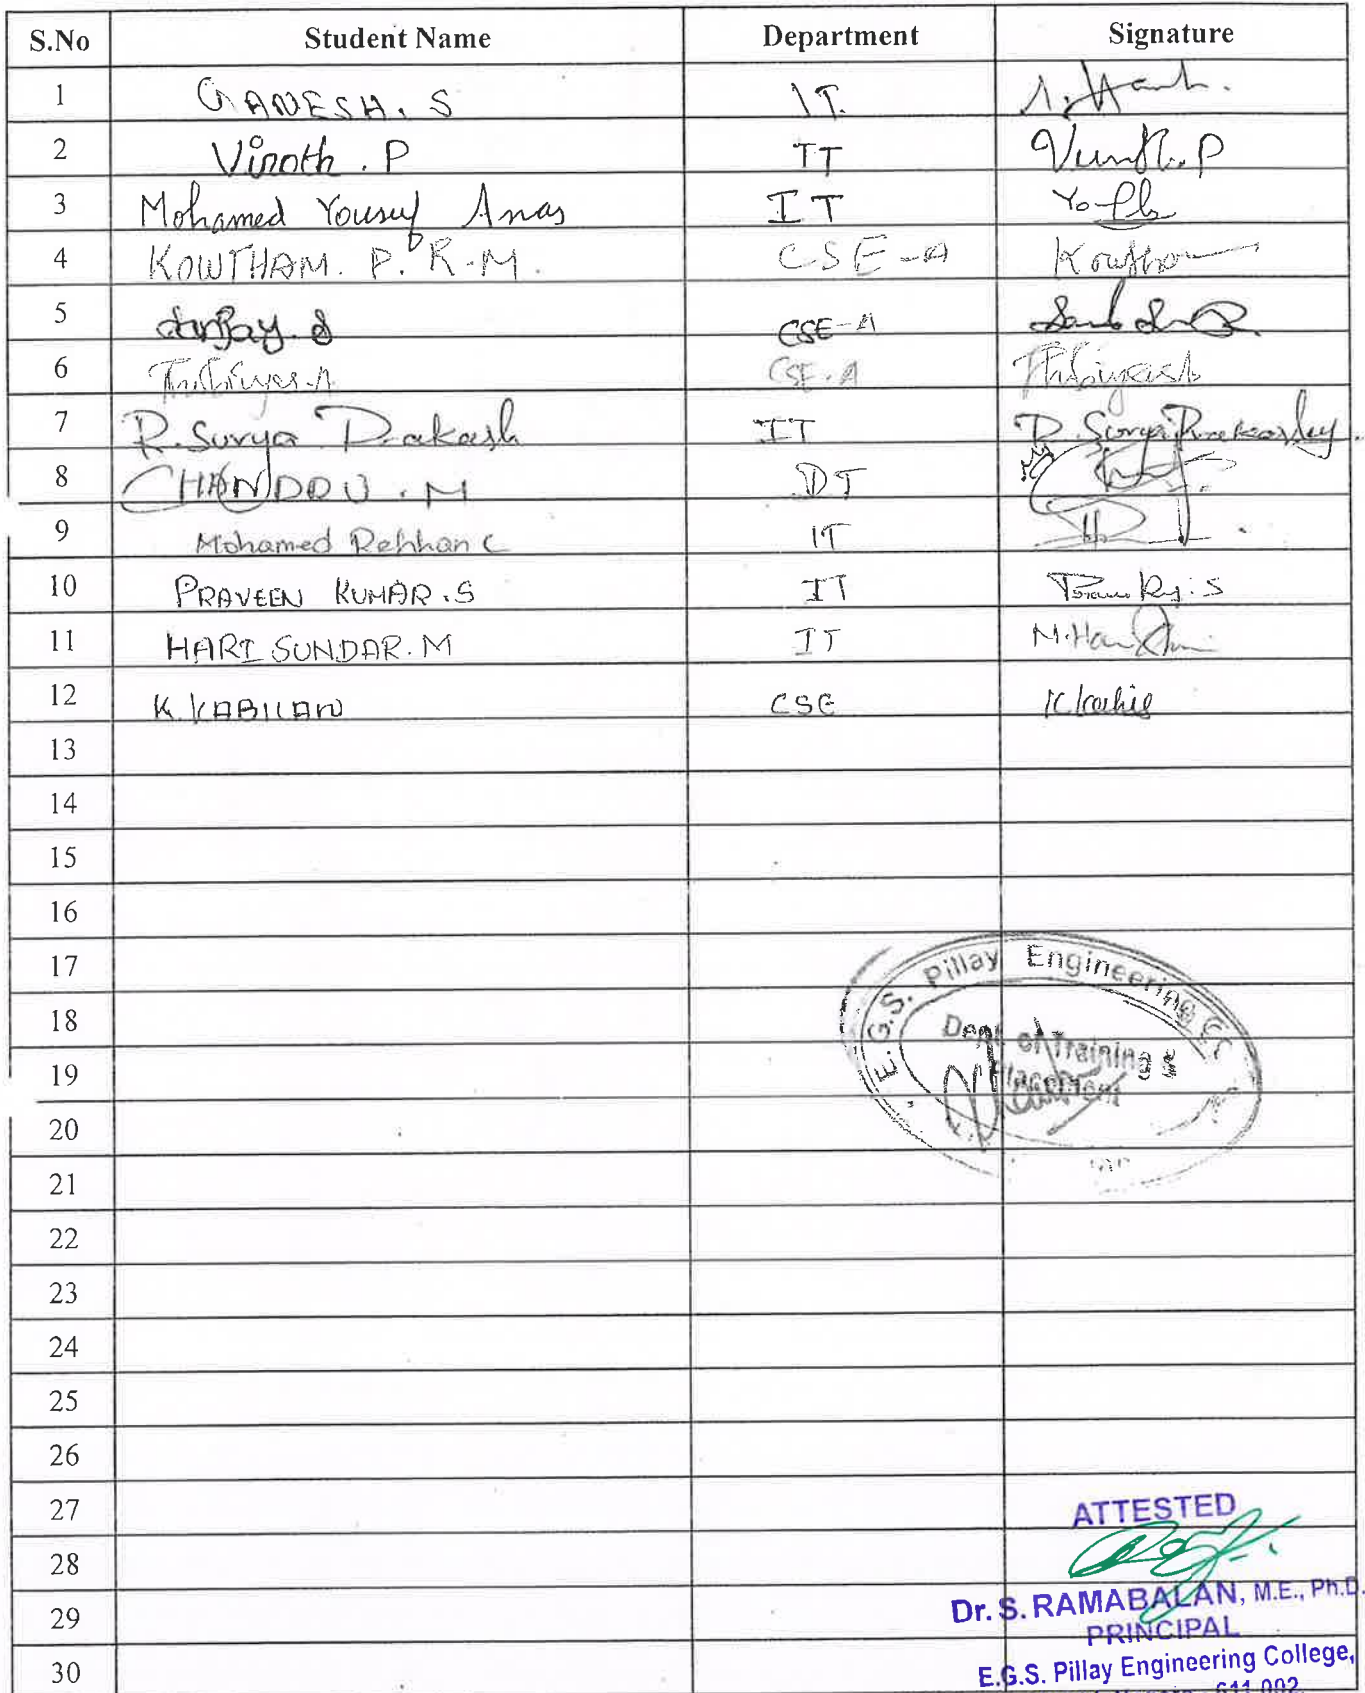 S.No Student Name Department Signature
1 GANESH. S IT.
2 Vinoth . P IT Vinoth. P
3 Mohamed Yousuf Anas IT
4 KOWTHAM. P. R.M. CSE-A Kowtham
5 Sanjay. S CSE-A
6 CSE-A
7 R. Surya Prakash IT R. Surya Prakash
8 CHANDRU . M IT
9 Mohamed Rehhan C IT
10 PRAVEEN KUMAR . S IT
11 HARI SUNDAR. M IT M. Hari
12 K. KABILAN CSE
13
14
15
16
17
18
19
20
21
22
23
24
25
26
27
28
29
30
E.G.S. Pillay Engineering
Dept of Training &
Placement
ATTESTED
Dr. S. RAMABALAN, M.E., Ph.D.
PRINCIPAL
E.G.S. Pillay Engineering College,
611 002